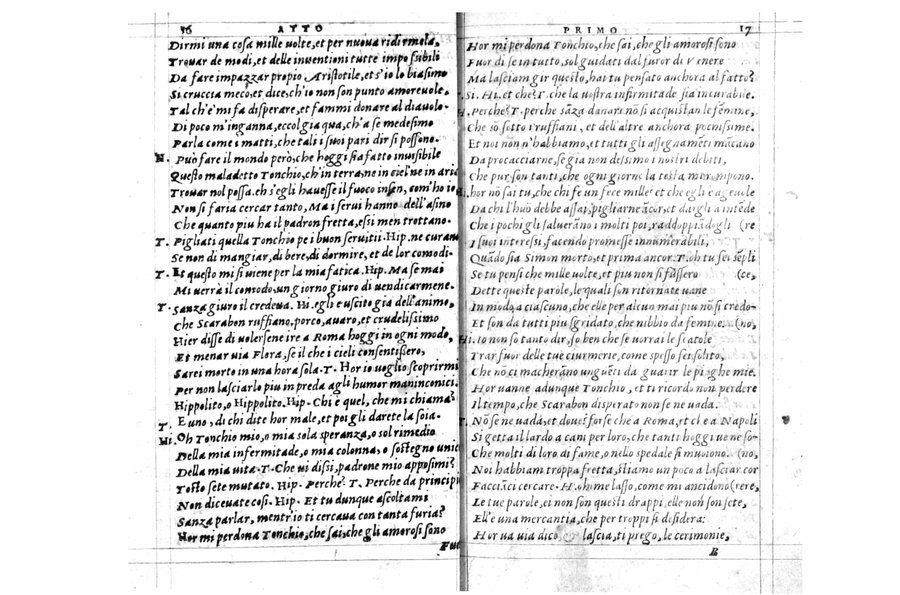 16 ATTO
Dirmi una cosa mille uolte, et per nuoua ridirmela,
Trouar de modi, et delle inuentioni tutte impossibili
Da fare impazzar propio Aristotile, et s'io lo biasimo
Si cruccia meco, et dice, ch'io non son punto amoreuole.
Tal ch'e mi fa disperare, et fammi donare al diauolo.
Di poco m'inganna, eccol gia qua, ch'a se medesimo
Parla come i matti, che tali i suoi pari dir si possono.
H. Può fare il mondo però, che hoggi sia fatto inuisibile
Questo maladetto Tonchio, ch'in terra, ne in ciel, ne in aria
Trouar nol possa. eh s'egli hauesse il fuoco com'ho io
Non si faria cercar tanto, Ma i serui hanno dell'asino
Che quanto piu ha il padron fretta, essi men trottano.
T. Pigliati quella Tonchio pe i buon seruitii. Hip. ne curano
Se non di mangiar, di bere, di dormire, et de lor comodi.
T. Et questo mi si uiene per la mia fatica. Hip. Ma se mai
Mi uerrà il comodo, un giorno giuro di uendicarmene.
T. Sanza giuro il credeua. Hi. egli è uscito gia dell'animo,
Che Scarabon ruffiano, porco, auaro, et crudelissimo
Hier disse di uolersene ire a Roma hoggi in ogni modo,
Et menar uia Flora, se il che i cieli consentissero,
Sarei morto in una hora sola. T. Hor io uoglio scoprirmi
Per non lasciarlo piu in preda agli humor maninconici.
Hippolito, o Hippolito. Hip. Chi è quel, che mi chiama?
T. E uno, di chi dite hor male, et poi gli darete la soia.
Hi. Oh Tonchio mio, o mia sola speranza, o sol rimedio
Della mia infermitade, o mia colonna, o sostegno unico
Della mia uita. T. Che ui dissi, padrone mio apposimi?
Tosto sete mutato. Hip. Perche? T. Perche da principio
Non diceuate cosi. Hip. Et tu dunque ascoltami
Sanza parlar, mentr'io ti cercaua con tanta furia?
Hor mi perdona Tonchio, che sai, che gli amorosi sono
Fuor
PRIMO 17
Hor mi perdona Tonchio, che sai, che gli amorosi sono
Fuor di se in tutto, sol guidati dal furor di Venere
Ma lasciam gir questo, hai tu pensato anchora al fatto?
Si. Hi. et che? T. che la uostra infirmitade sia incurabile.
H. Perche? T. perche sāza danari nō si acquistan le fēmine,
Che sō sotto i ruffiani, et dell'altre anchora pochissime.
Et noi non n'habbiamo, et tutti gli assegnamēti mācano
Da procacciarne, se gia non dessimo i nostri debiti,
Che pur son tanti, che ogni giorno la testa mi rompono.
hor nō sai tu, che chi fe un fece mille? et che egli è ageuole
Da chi l'huō debbe assai, pigliarne ācor, et dargli a intēde
Che i pochi gli salueranno i molti poi, raddoppiādogli (re
I suoi interessi, facendo promesse innumerabili,
Quādo sia Simon morto, et prima ancor. T. oh tu sei sēpli
Se tu pensi che mille uolte, et piu non si sāssero (ce,
Dette queste parole, le quali son ritornate uane
In modo, a ciascuno, che elle per alcun mai piu nō si credo-
Et son da tutti piu sgridato, che nibbio da femine. (no,
Hi. Io non so tanto dir, so ben che se uorrai le scatole
Trar fuor delle tue ciurmerie, come spesso sei solito,
Che nō ci macherāno unguēti da guarir le piaghe mie.
Hor uanne adunque Tonchio, et ti ricordo non perdere
Il tempo, che Scarabon disperato non se ne uada.
T. Nō se ne uada, et doue? forse che a Roma, et ci è a Napoli
Si getta il lardo a cani per loro, che tanti hoggi ue ne so-
Che molti di loro di fame, o nello spedale si muoiono. (no,
Noi habbiam troppa fretta, stiamo un poco a lasciar cor
Facciāci cercare. H. ohime lasso, come mi ancidono (rere,
Le tue parole, ei non son questi drappi, elle non son sete,
Ell'è una mercantia, che per troppi si desidera:
Hor ua uia dico, lascia, ti prego, le cerimonie,
B